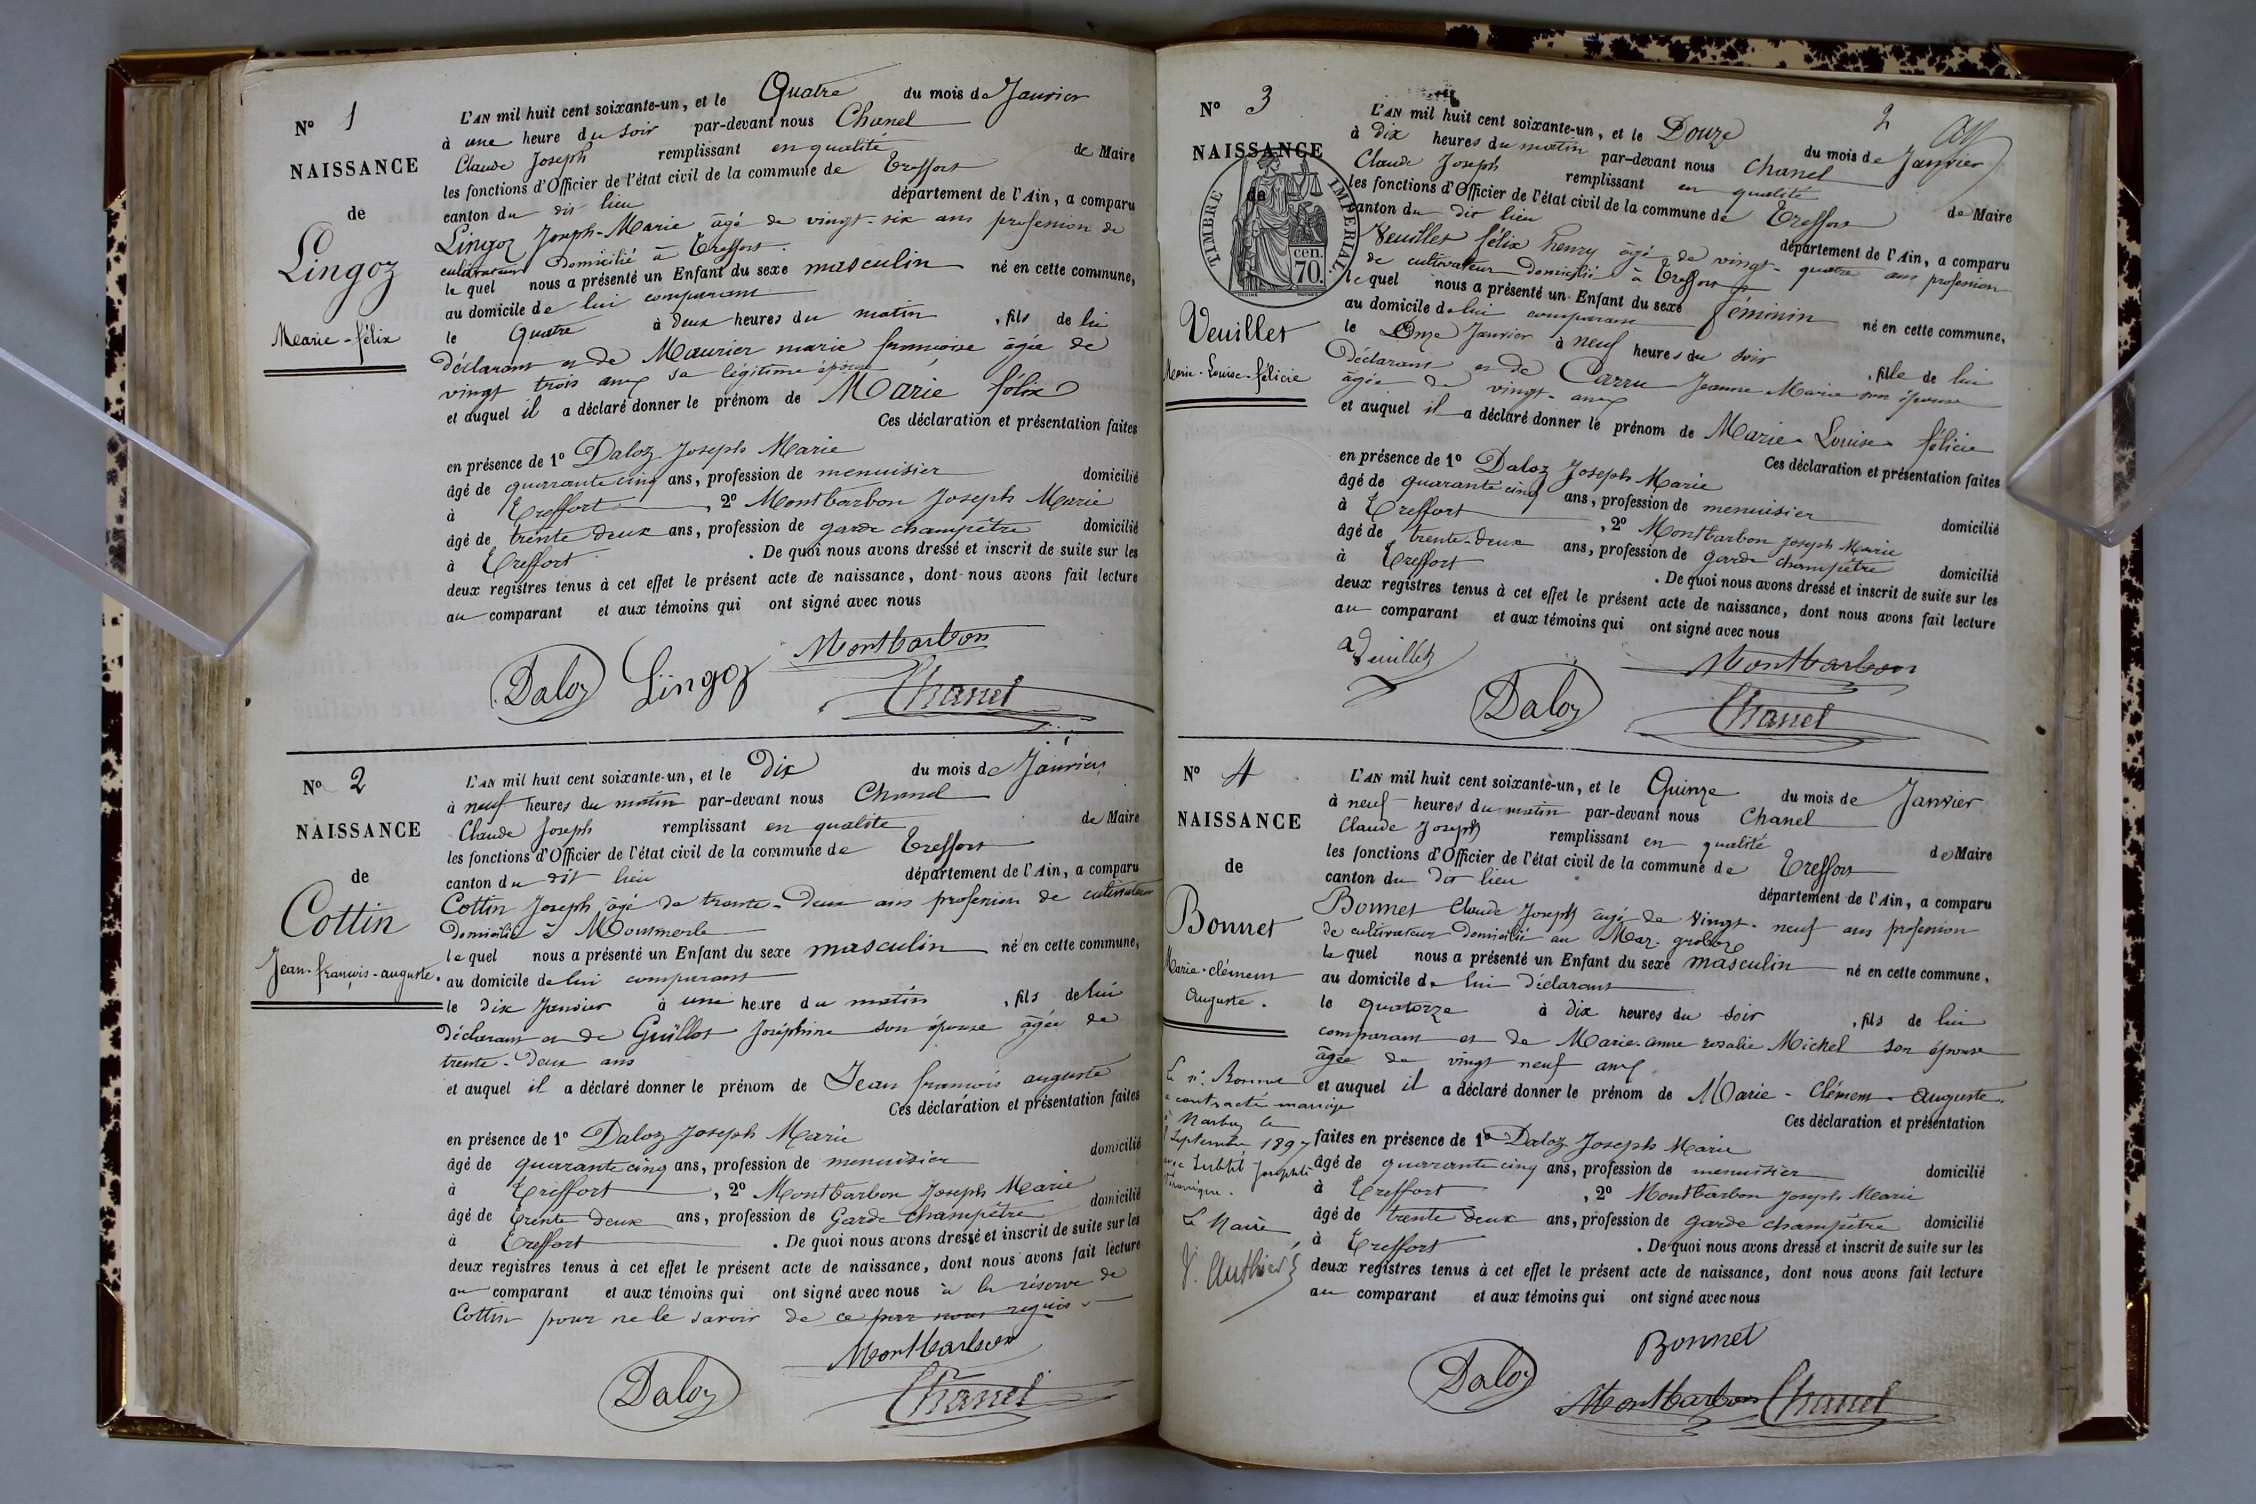 N° 1
NAISSANCE
de
Lingoz
Marie-félix
L'AN mil huit cent soixante-un, et le Quatre du mois de Janvier
à une heure du soir par-devant nous Chanel
Claude Joseph remplissant en qualité de Maire
les fonctions d'Officier de l'état civil de la commune de Treffort
canton du dit lieu département de l'Ain, a comparu
Lingoz Joseph-Marie âgé de vingt-six ans profession de
cultivateur domicilié à Treffort.
lequel nous a présenté un Enfant du sexe masculin né en cette commune,
au domicile de lui comparant
le Quatre à deux heures du matin, fils de lui
déclarant et de Maurier marie francoise âgée de
vingt trois ans sa légitime épouse
et auquel il a déclaré donner le prénom de Marie félix
Ces déclaration et présentation faites
en présence de 1° Daloz Joseph Marie
âgé de quarante cinq ans, profession de menuisier domicilié
à Treffort, 2° Montbarbon Joseph Marie
âgé de trente deux ans, profession de garde champêtre domicilié
à Treffort. De quoi nous avons dressé et inscrit de suite sur les
deux registres tenus à cet effet le présent acte de naissance, dont nous avons fait lecture
au comparant et aux témoins qui ont signé avec nous
Montbarbon
Daloz Lingoz
Chanel
N° 2
NAISSANCE
de
Cottin
Jean-françois-auguste.
L'AN mil huit cent soixante-un, et le Dix du mois de Janvier
à neuf heures du matin par-devant nous Chanel
Claude Joseph remplissant en qualité de Maire
les fonctions d'Officier de l'état civil de la commune de Treffort
canton du dit lieu département de l'Ain, a comparu
Cottin Joseph âgé de trente-deux ans profession de cultivateur
domicilié à Montmerle
lequel nous a présenté un Enfant du sexe masculin né en cette commune,
au domicile de lui comparant
le dix Janvier à une heure du matin, fils de lui
déclarant et de Guillot Joséphine son épouse âgée de
trente-deux ans
et auquel il a déclaré donner le prénom de Jean francois auguste
Ces déclaration et présentation faites
en présence de 1° Daloz Joseph Marie
âgé de quarante cinq ans, profession de menuisier domicilié
à Treffort, 2° Montbarbon Joseph Marie
âgé de trente deux ans, profession de Garde champêtre domicilié
à Treffort. De quoi nous avons dressé et inscrit de suite sur les
deux registres tenus à cet effet le présent acte de naissance, dont nous avons fait lecture
au comparant et aux témoins qui ont signé avec nous à la réserve de
Cottin pour ne le savoir de ce par nous requis
Montbarbon
Daloz
Chanel
2
N° 3
NAISSANCE
de
TIMBRE IMPERIAL.
cen.
70.
Veuillet
Marie-Louise-félicie
L'AN mil huit cent soixante-un, et le Douze du mois de Janvier
à dix heures du matin par-devant nous Chanel
Claude Joseph remplissant en qualité de Maire
les fonctions d'Officier de l'état civil de la commune de Treffort
canton du dit lieu département de l'Ain, a comparu
Veuillet félix henry âgé de vingt-quatre ans profession
de cultivateur domicilié à Treffort
lequel nous a présenté un Enfant du sexe féminin né en cette commune,
au domicile de lui comparant
le Onze Janvier à neuf heures du soir, fille de lui
déclarant et de Carru Jeanne Marie son épouse
âgée de vingt-ans
et auquel il a déclaré donner le prénom de Marie Louise félicie
Ces déclaration et présentation faites
en présence de 1° Daloz Joseph Marie
âgé de quarante cinq ans, profession de menuisier domicilié
à Treffort, 2° Montbarbon Joseph Marie
âgé de trente-deux ans, profession de garde champêtre domicilié
à Treffort. De quoi nous avons dressé et inscrit de suite sur les
deux registres tenus à cet effet le présent acte de naissance, dont nous avons fait lecture
au comparant et aux témoins qui ont signé avec nous
Veuillet
Montbarbon
Daloz
Chanel
N° 4
NAISSANCE
de
Bonnet
Marie-clément
Auguste.
Le Sr Bonnet
a contracté mariage
à Marboz le
Septembre 1897
avec Joséphte
Le Maire
L'AN mil huit cent soixante-un, et le Quinze du mois de Janvier
à neuf heures du matin par-devant nous Chanel
Claude Joseph remplissant en qualité de Maire
les fonctions d'Officier de l'état civil de la commune de Treffort
canton du dit lieu département de l'Ain, a comparu
Bonnet Claude Joseph âgé de vingt-neuf ans profession
de cultivateur domicilié au Maz-groboz
lequel nous a présenté un Enfant du sexe masculin né en cette commune,
au domicile de lui déclarant
le quatorze à dix heures du soir, fils de lui
comparant et de Marie anne rosalie Michel son épouse
âgée de vingt neuf ans
et auquel il a déclaré donner le prénom de Marie-Clément-Auguste.
Ces déclaration et présentation
faites en présence de 1° Daloz Joseph Marie
âgé de quarante cinq ans, profession de menuisier domicilié
à Treffort, 2° Montbarbon Joseph Marie
âgé de trente deux ans, profession de garde champêtre domicilié
à Treffort. De quoi nous avons dressé et inscrit de suite sur les
deux registres tenus à cet effet le présent acte de naissance, dont nous avons fait lecture
au comparant et aux témoins qui ont signé avec nous
Bonnet
Daloz
Montbarbon Chanel